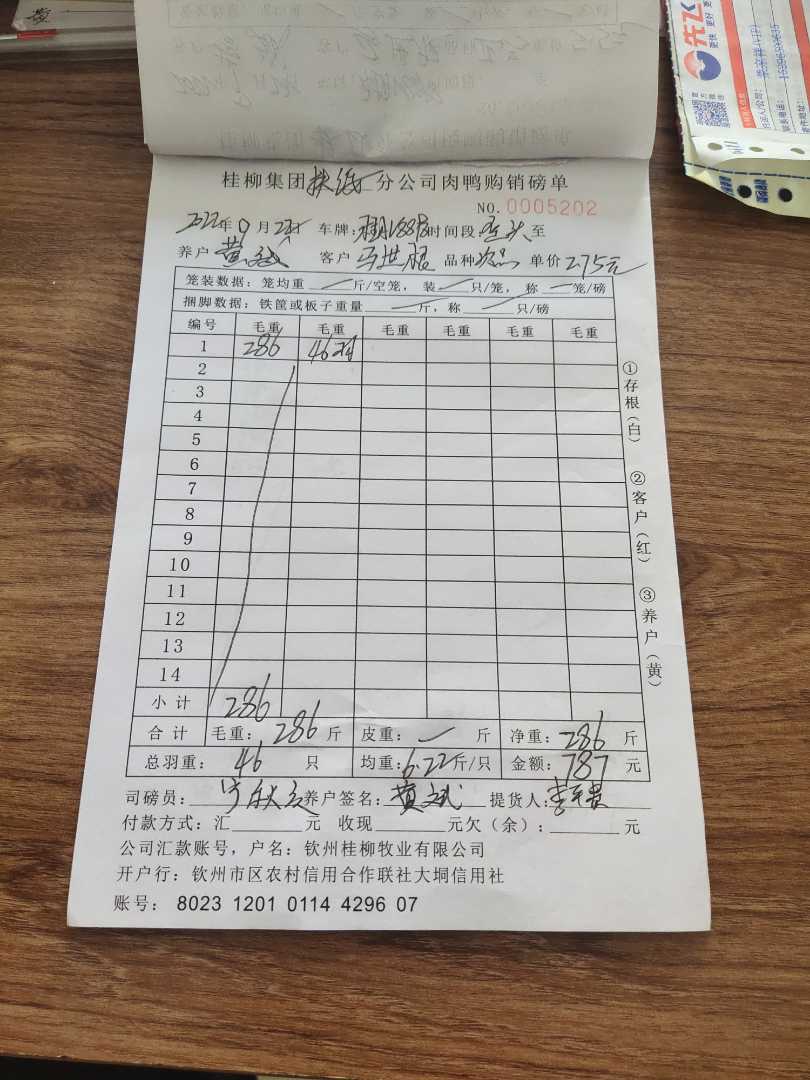 先飞
更快 更好 更
桂柳集团 分公司肉鸭购销磅单
NO. 0005202
2022年9月 日 车牌: 时间段 至
养户 黄 客户 马世 品种 单价 2.75元
笼装数据: 笼均重 一 斤/空笼, 装 一 只/笼, 称 一 笼/磅
捆脚数据: 铁筐或板子重量 一 斤, 称 一 只/磅
编号 毛重 毛重 毛重 毛重 毛重 毛重
1 286 46羽
2
3
4
5
6
7
8
9
10
11
12
13
14
小计 286
合计 毛重: 286 斤 皮重: 一 斤 净重: 286 斤
总羽重: 46 只 均重: 6.22斤/只 金额: 787 元
司磅员: 养户签名: 黄斌 提货人: 李
付款方式: 汇 元 收现 元欠(余): 元
公司汇款账号, 户名: 钦州桂柳牧业有限公司
开户行: 钦州市区农村信用合作联社大垌信用社
账号: 8023 1201 0114 4296 07
①存根(白)
②客户(红)
③养户(黄)